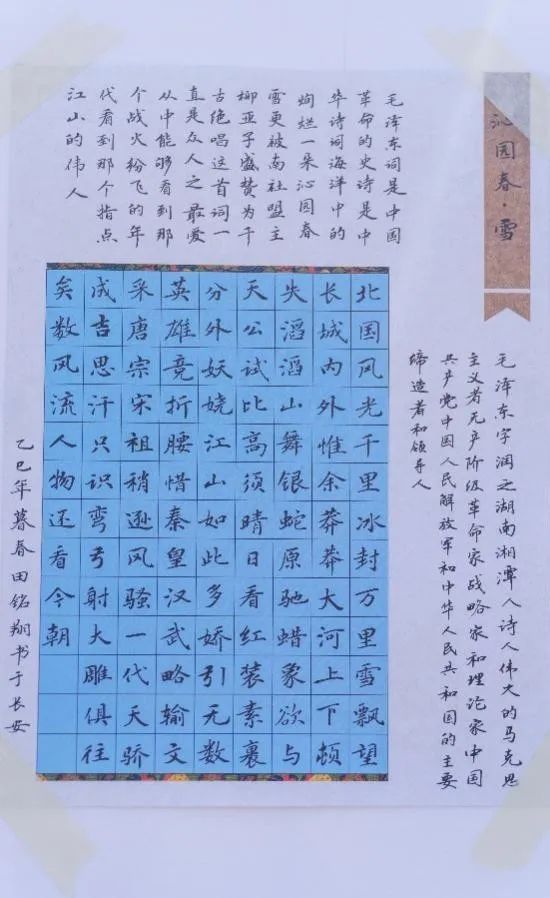 沁园春·雪
毛泽东字润之湖南湘潭人诗人伟大的马克思
主义者无产阶级革命家战略家和理论家中国
共产党中国人民解放军和中华人民共和国的主要
缔造者和领导人
毛泽东词是中国
革命的史诗是中
华诗词海洋中的
绚烂一朵沁园春
雪更被南社盟主
柳亚子盛赞为千
古绝唱这首词一
直是众人之最爱
从中能够看到那
个战火纷飞的年
代看到那个指点
江山的伟人
北国风光千里冰封万里雪飘望
长城内外惟余莽莽大河上下顿
失滔滔山舞银蛇原驰蜡象欲与
天公试比高须晴日看红装素裹
分外妖娆江山如此多娇引无数
英雄竞折腰惜秦皇汉武略输文
采唐宗宋祖稍逊风骚一代天骄
成吉思汗只识弯弓射大雕俱往
矣数风流人物还看今朝
乙巳年暮春田铭翔书于长安